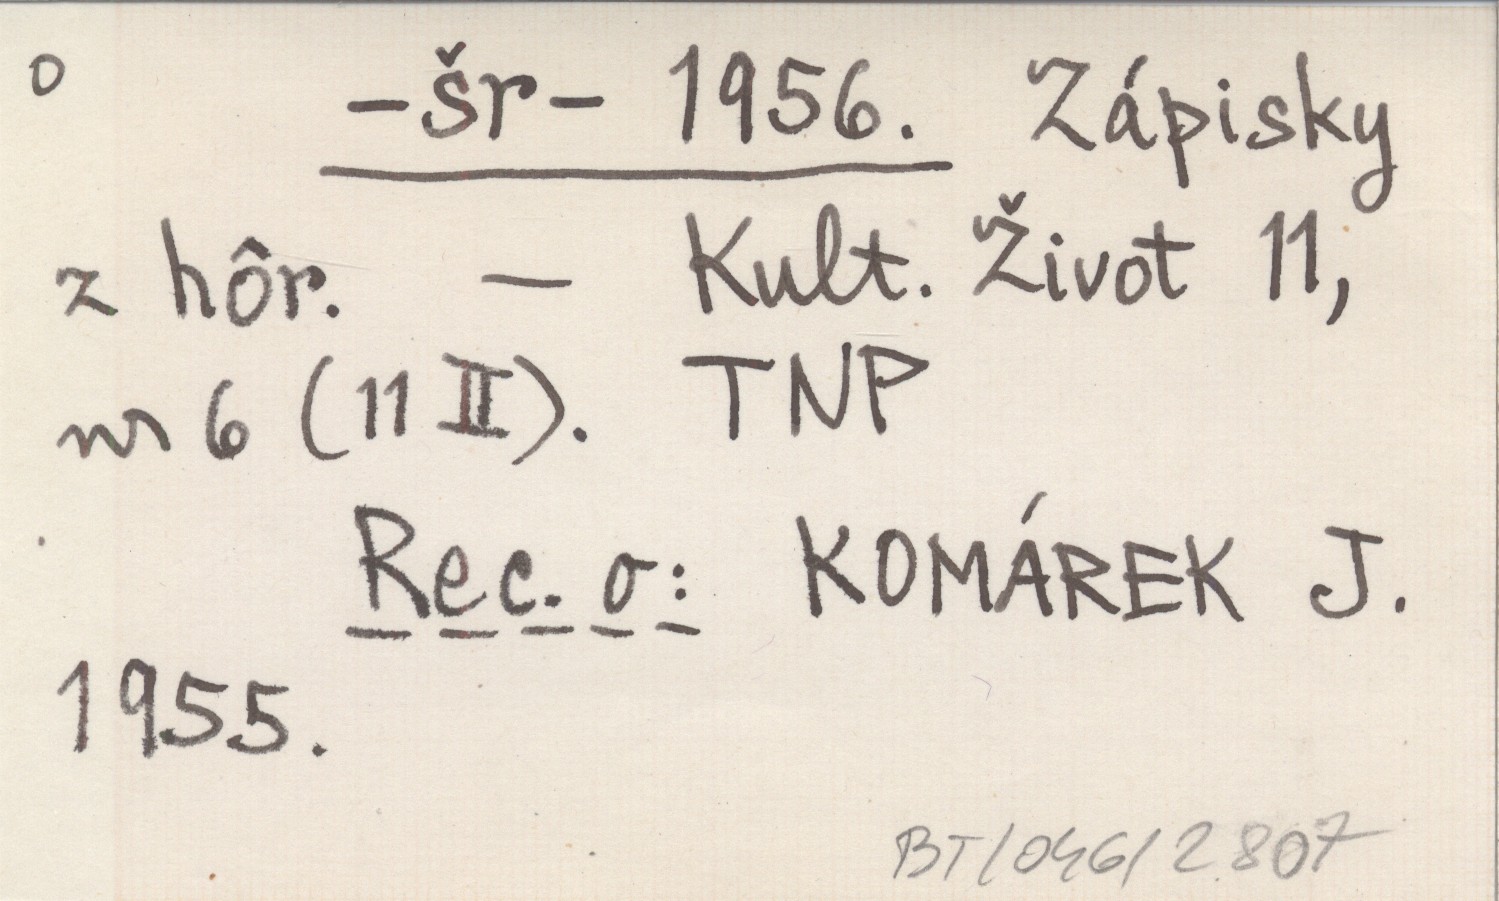 o -šr- 1956. Zápisky
z hôr. — Kult. Život 11,
nr 6 (11 II). TNP
Rec. o: KOMÁREK J.
1955.
BT/046/2807